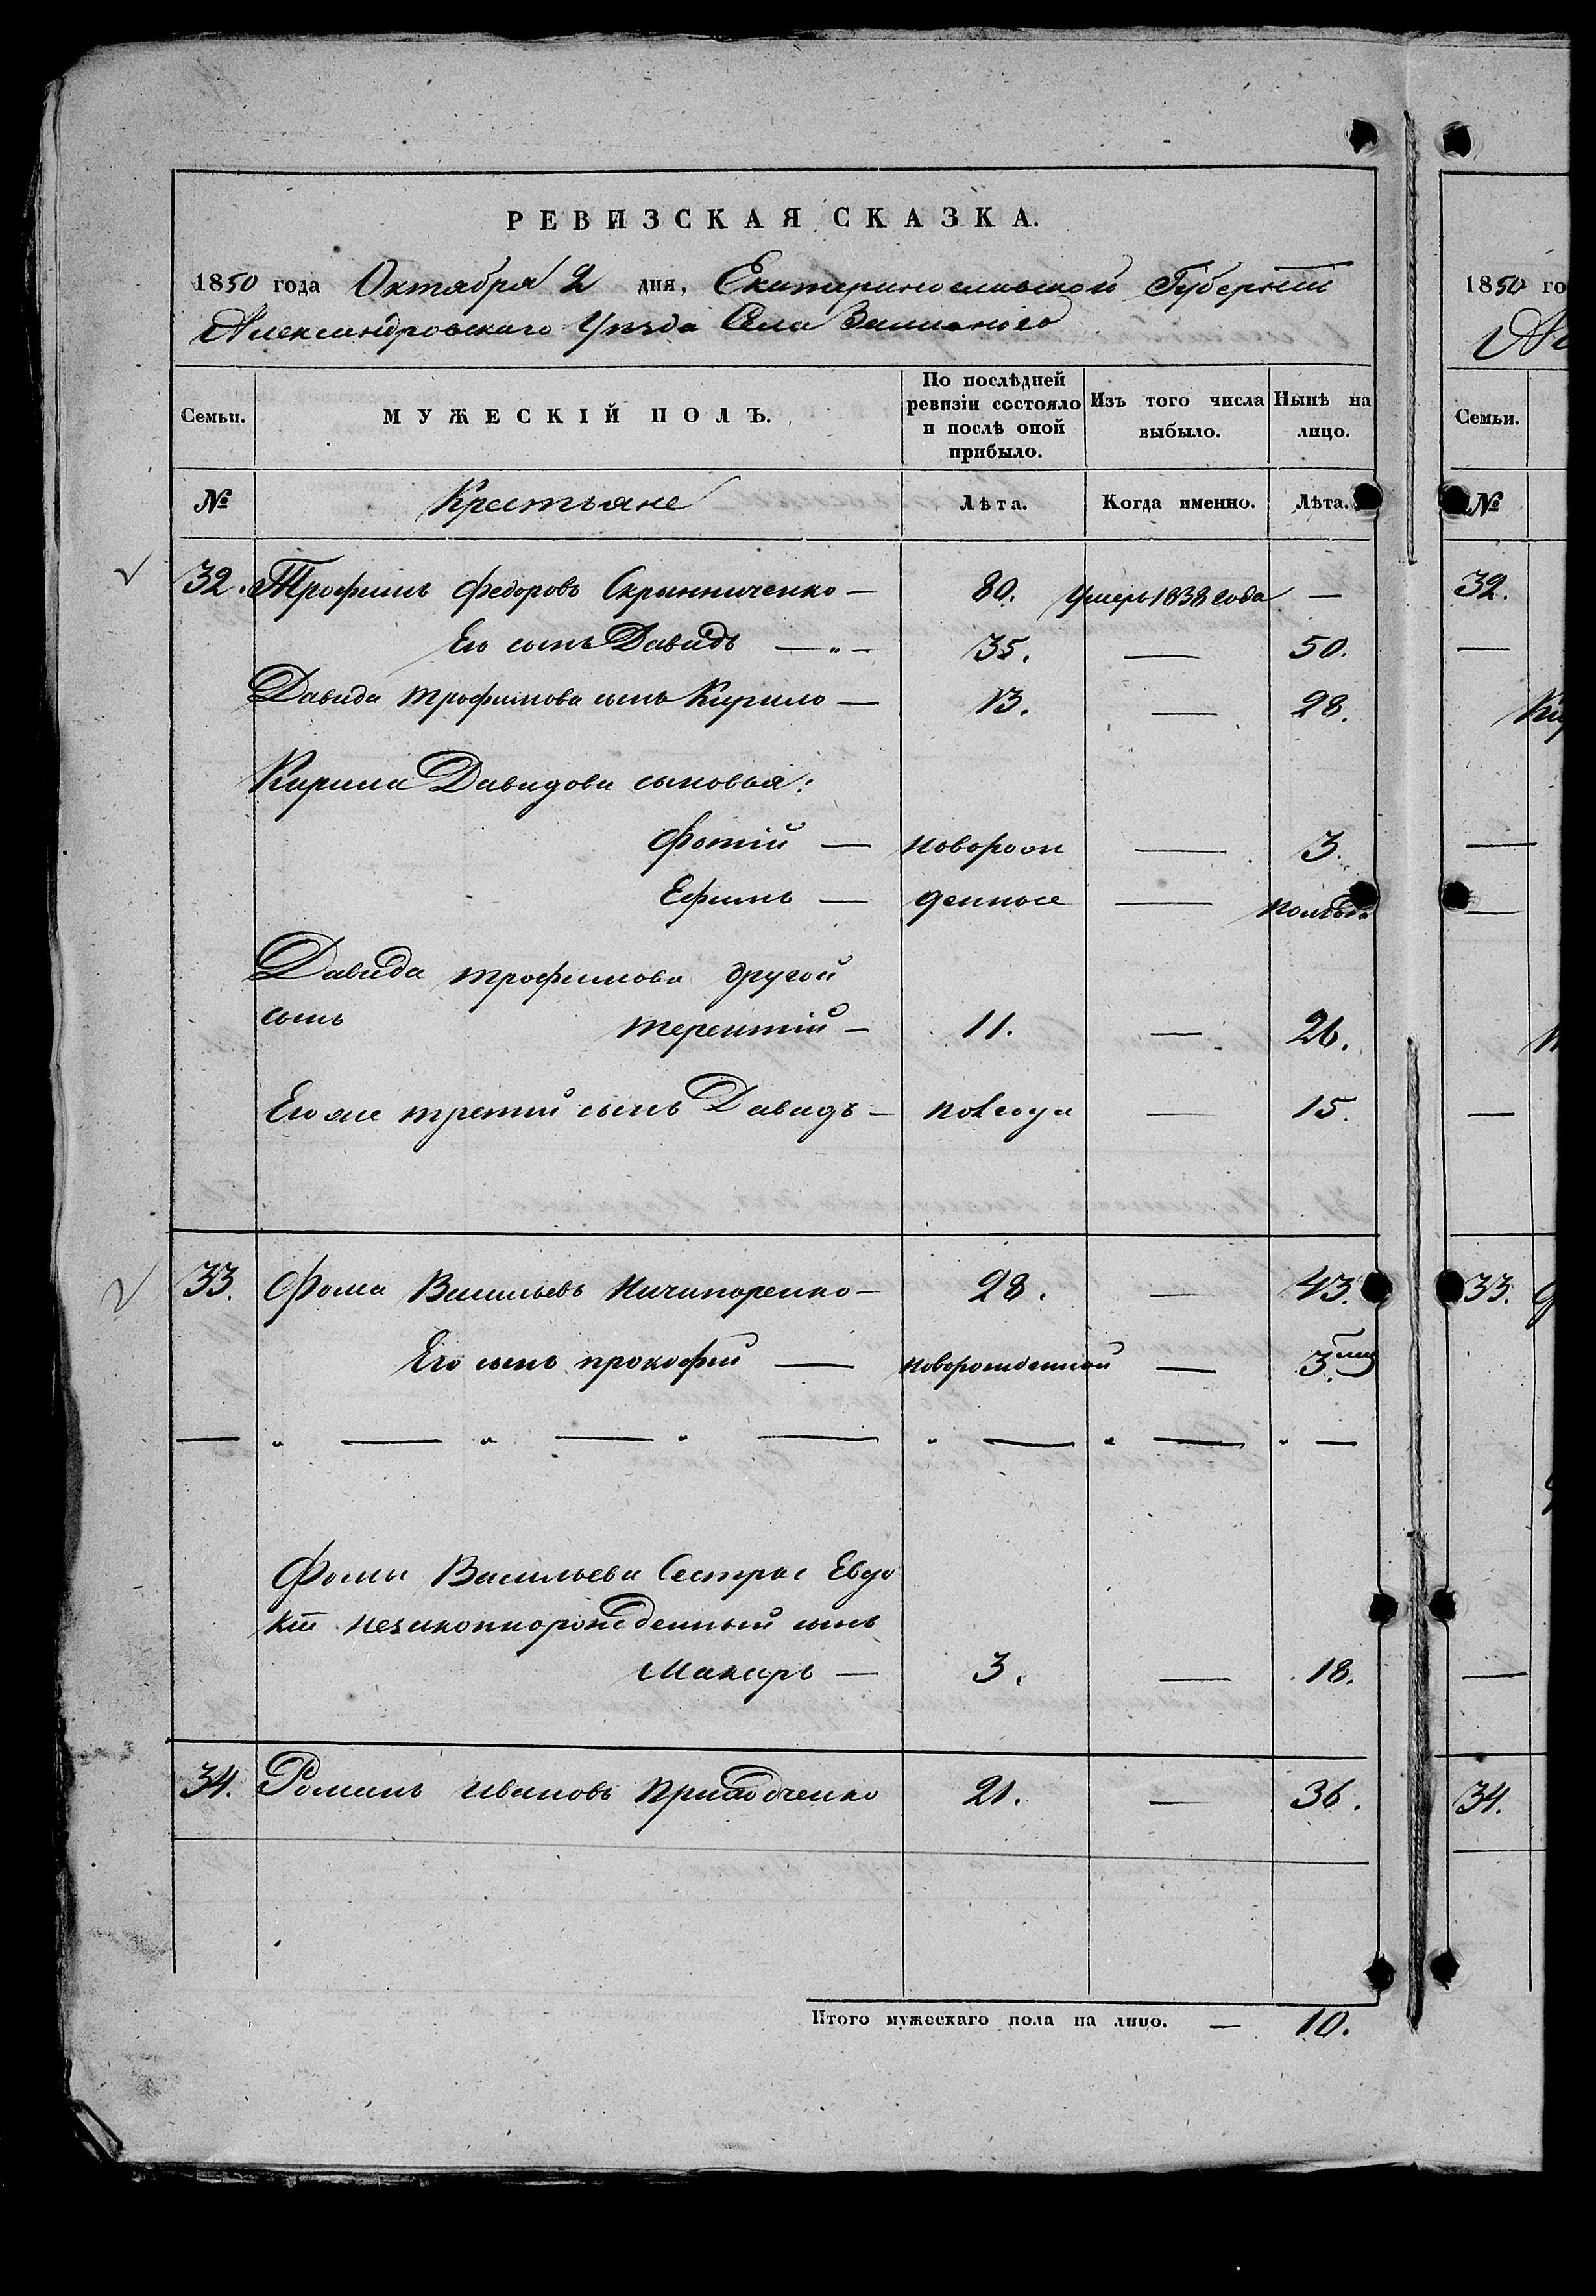 РЕВИЗСКАЯ СКАЗКА.
1850 года Октября 2 дня, Екатеринославской Губерніи
Александровскаго Уѣзда Села
Семьи. МУЖЕСКІЙ ПОЛЪ. По послѣдней ревизіи состояло и послѣ оной прибыло. Изъ того числа выбыло. Нынѣ на лицо.
№ Крестьяне Лѣта. Когда именно. Лѣта.
32. Трофимъ Федоровъ Скрынниченко — 80. Умеръ 1838 года —
Его сынъ Давидъ — „ — 35. — 50.
Давида Трофимова сынъ Кирило — 13. — 28.
Кирила Давидова сыновья:
Фотій — новорож — 3.
Ефимъ — денные —
Давида трофимова другой
сынъ терентій — 11. — 26.
Его же третій сынъ Давидъ — полгода — 15.
33. Фома Васильевъ Ничипоренко — 28. — 43.
Его сынъ прокофій — новорожденной — 3.
— „ — „ — „ — „ — „ — „ —
Фомы Васильева Сестры Евдо
кіи незаконнорожденный сынъ
Макаръ — 3. — 18.
34. Романъ Ивановъ Приходченко 21. — 36.
Итого мужескаго пола на лицо. — 10.
1850 го
Семьи.
№
32.
—
—
—
—
33.
—
34.